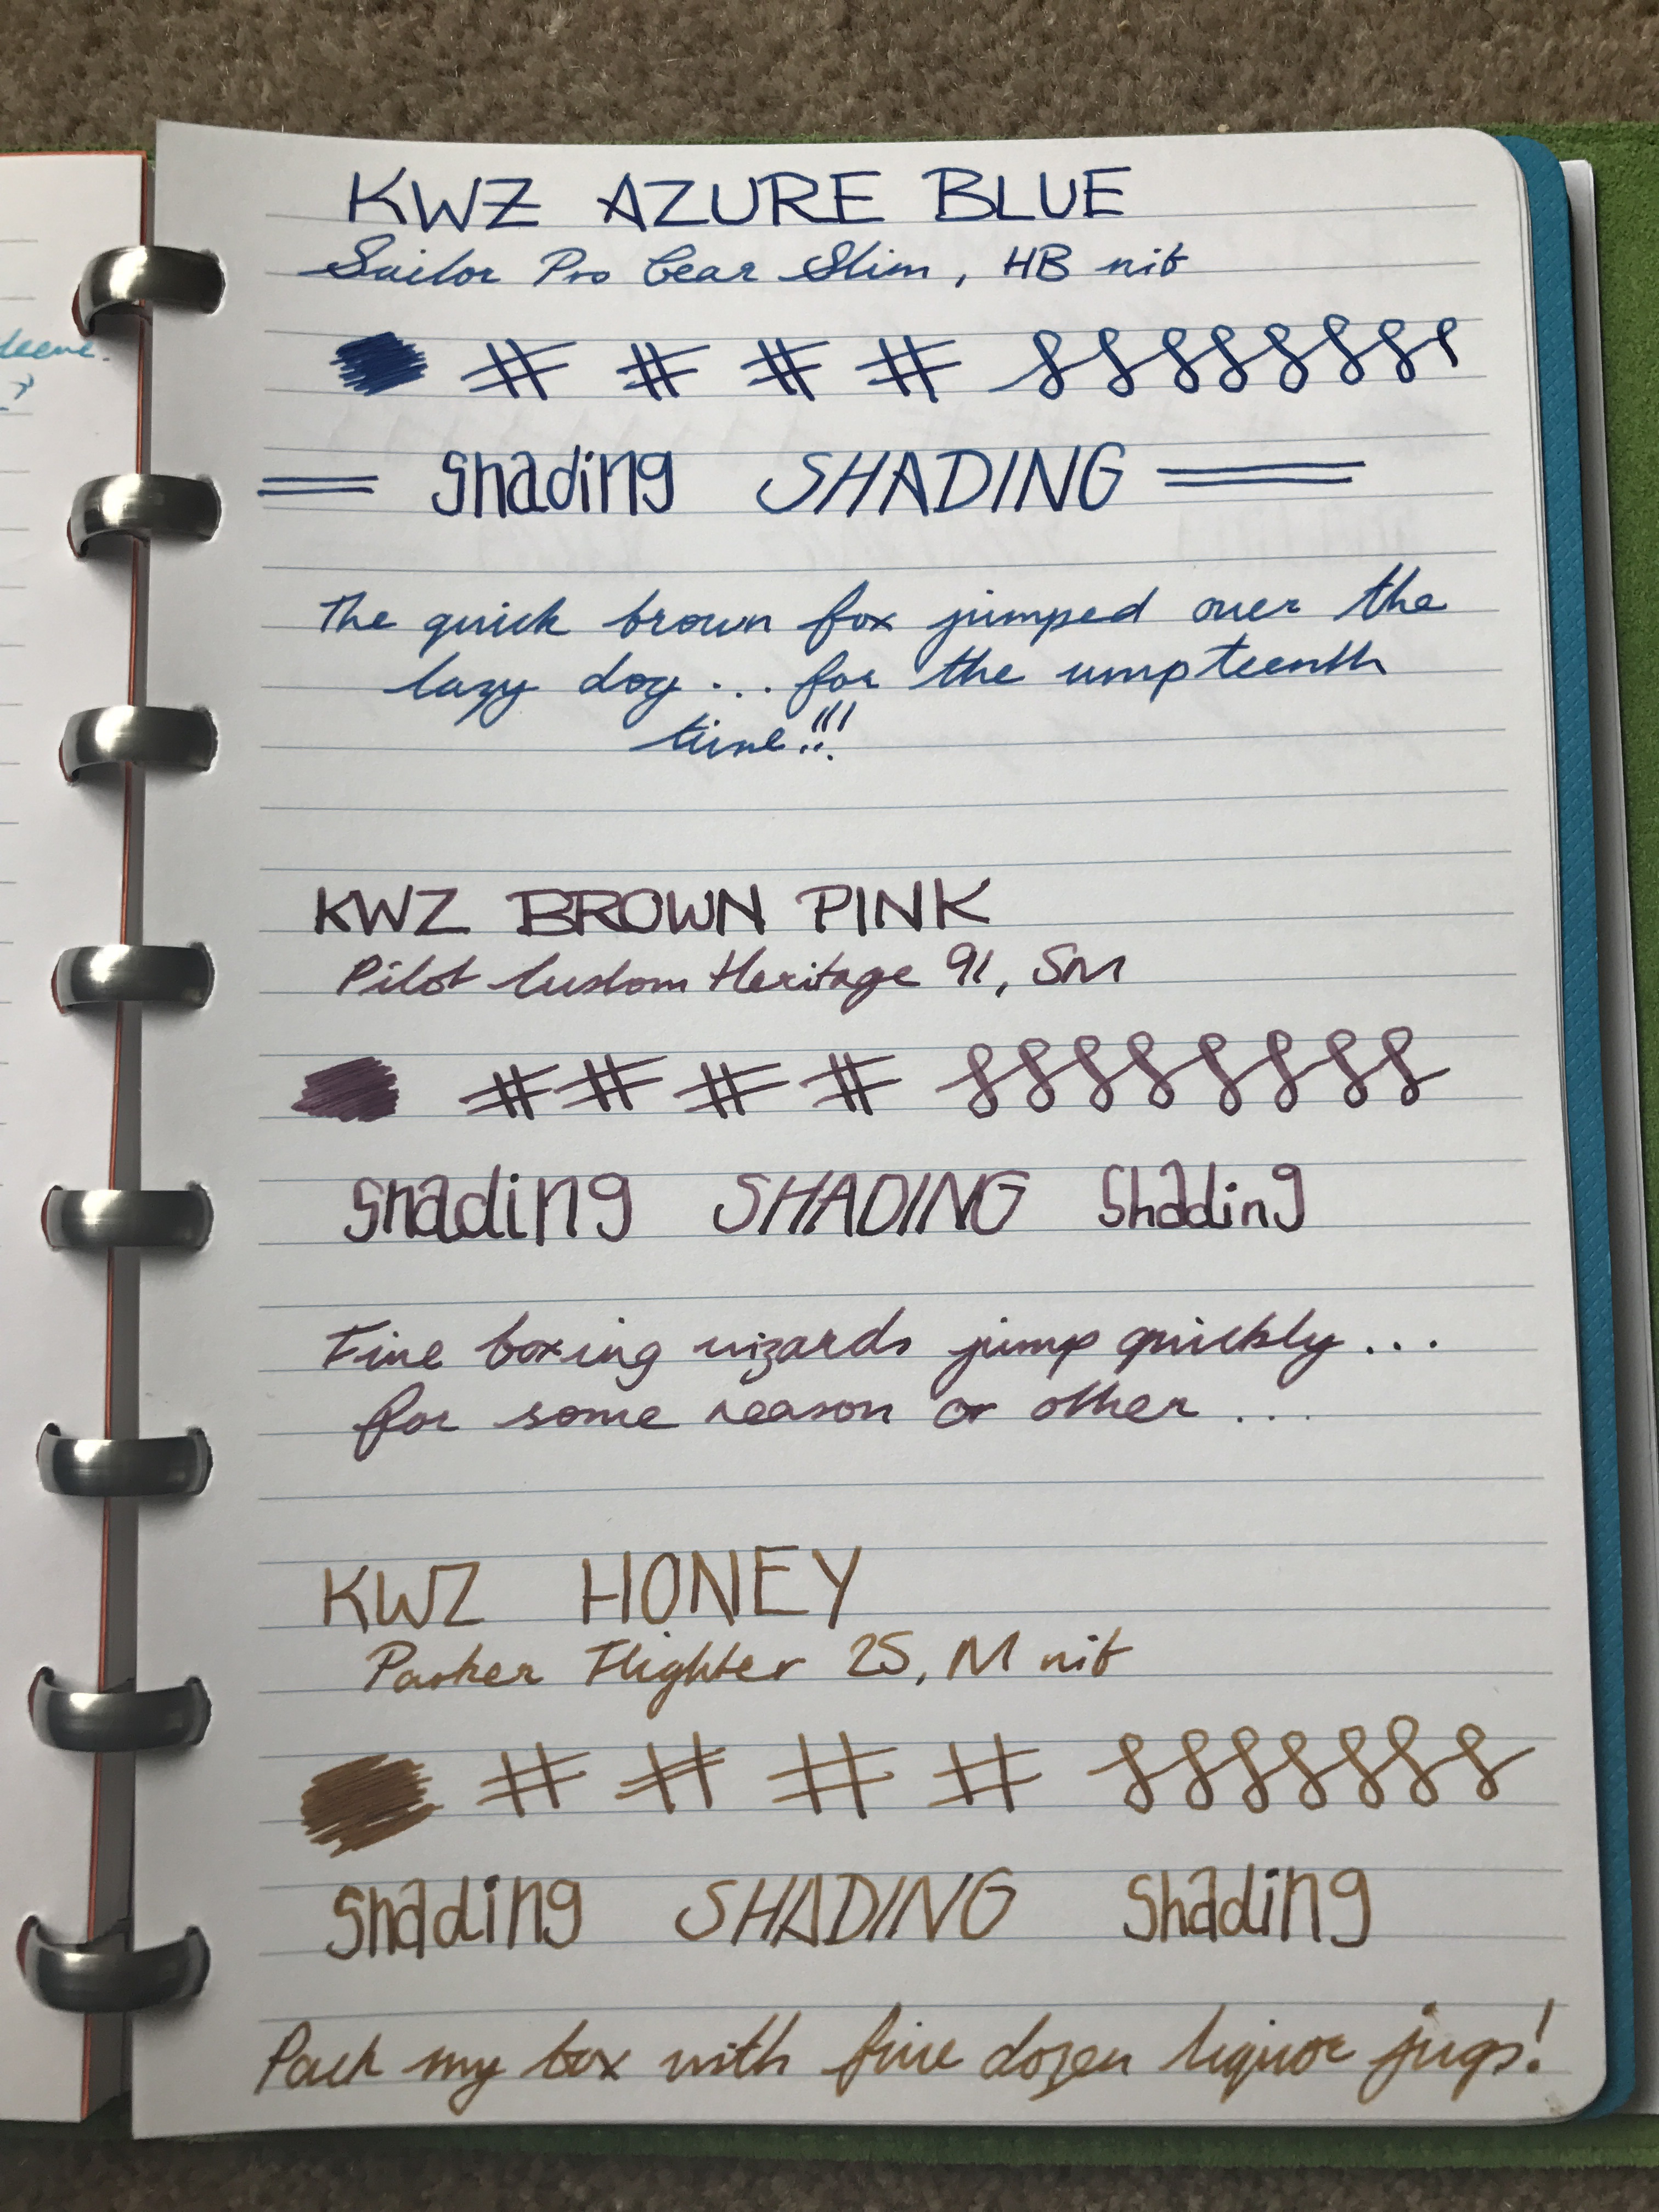 KWZ AZURE BLUE
Sailor Pro Gear Slim, HB nib
# # # #
shading SHADING
The quick brown fox jumped over the
lazy dog... for the umpteenth
time!!!
KWZ BROWN PINK
Pilot Custom Heritage 91, SM
# # # #
shading SHADING shading
Five boxing wizards jump quickly...
for some reason or other...
KWZ HONEY
Parker Flighter 25, M nib
# # # #
shading SHADING shading
Pack my box with five dozen liquor jugs!